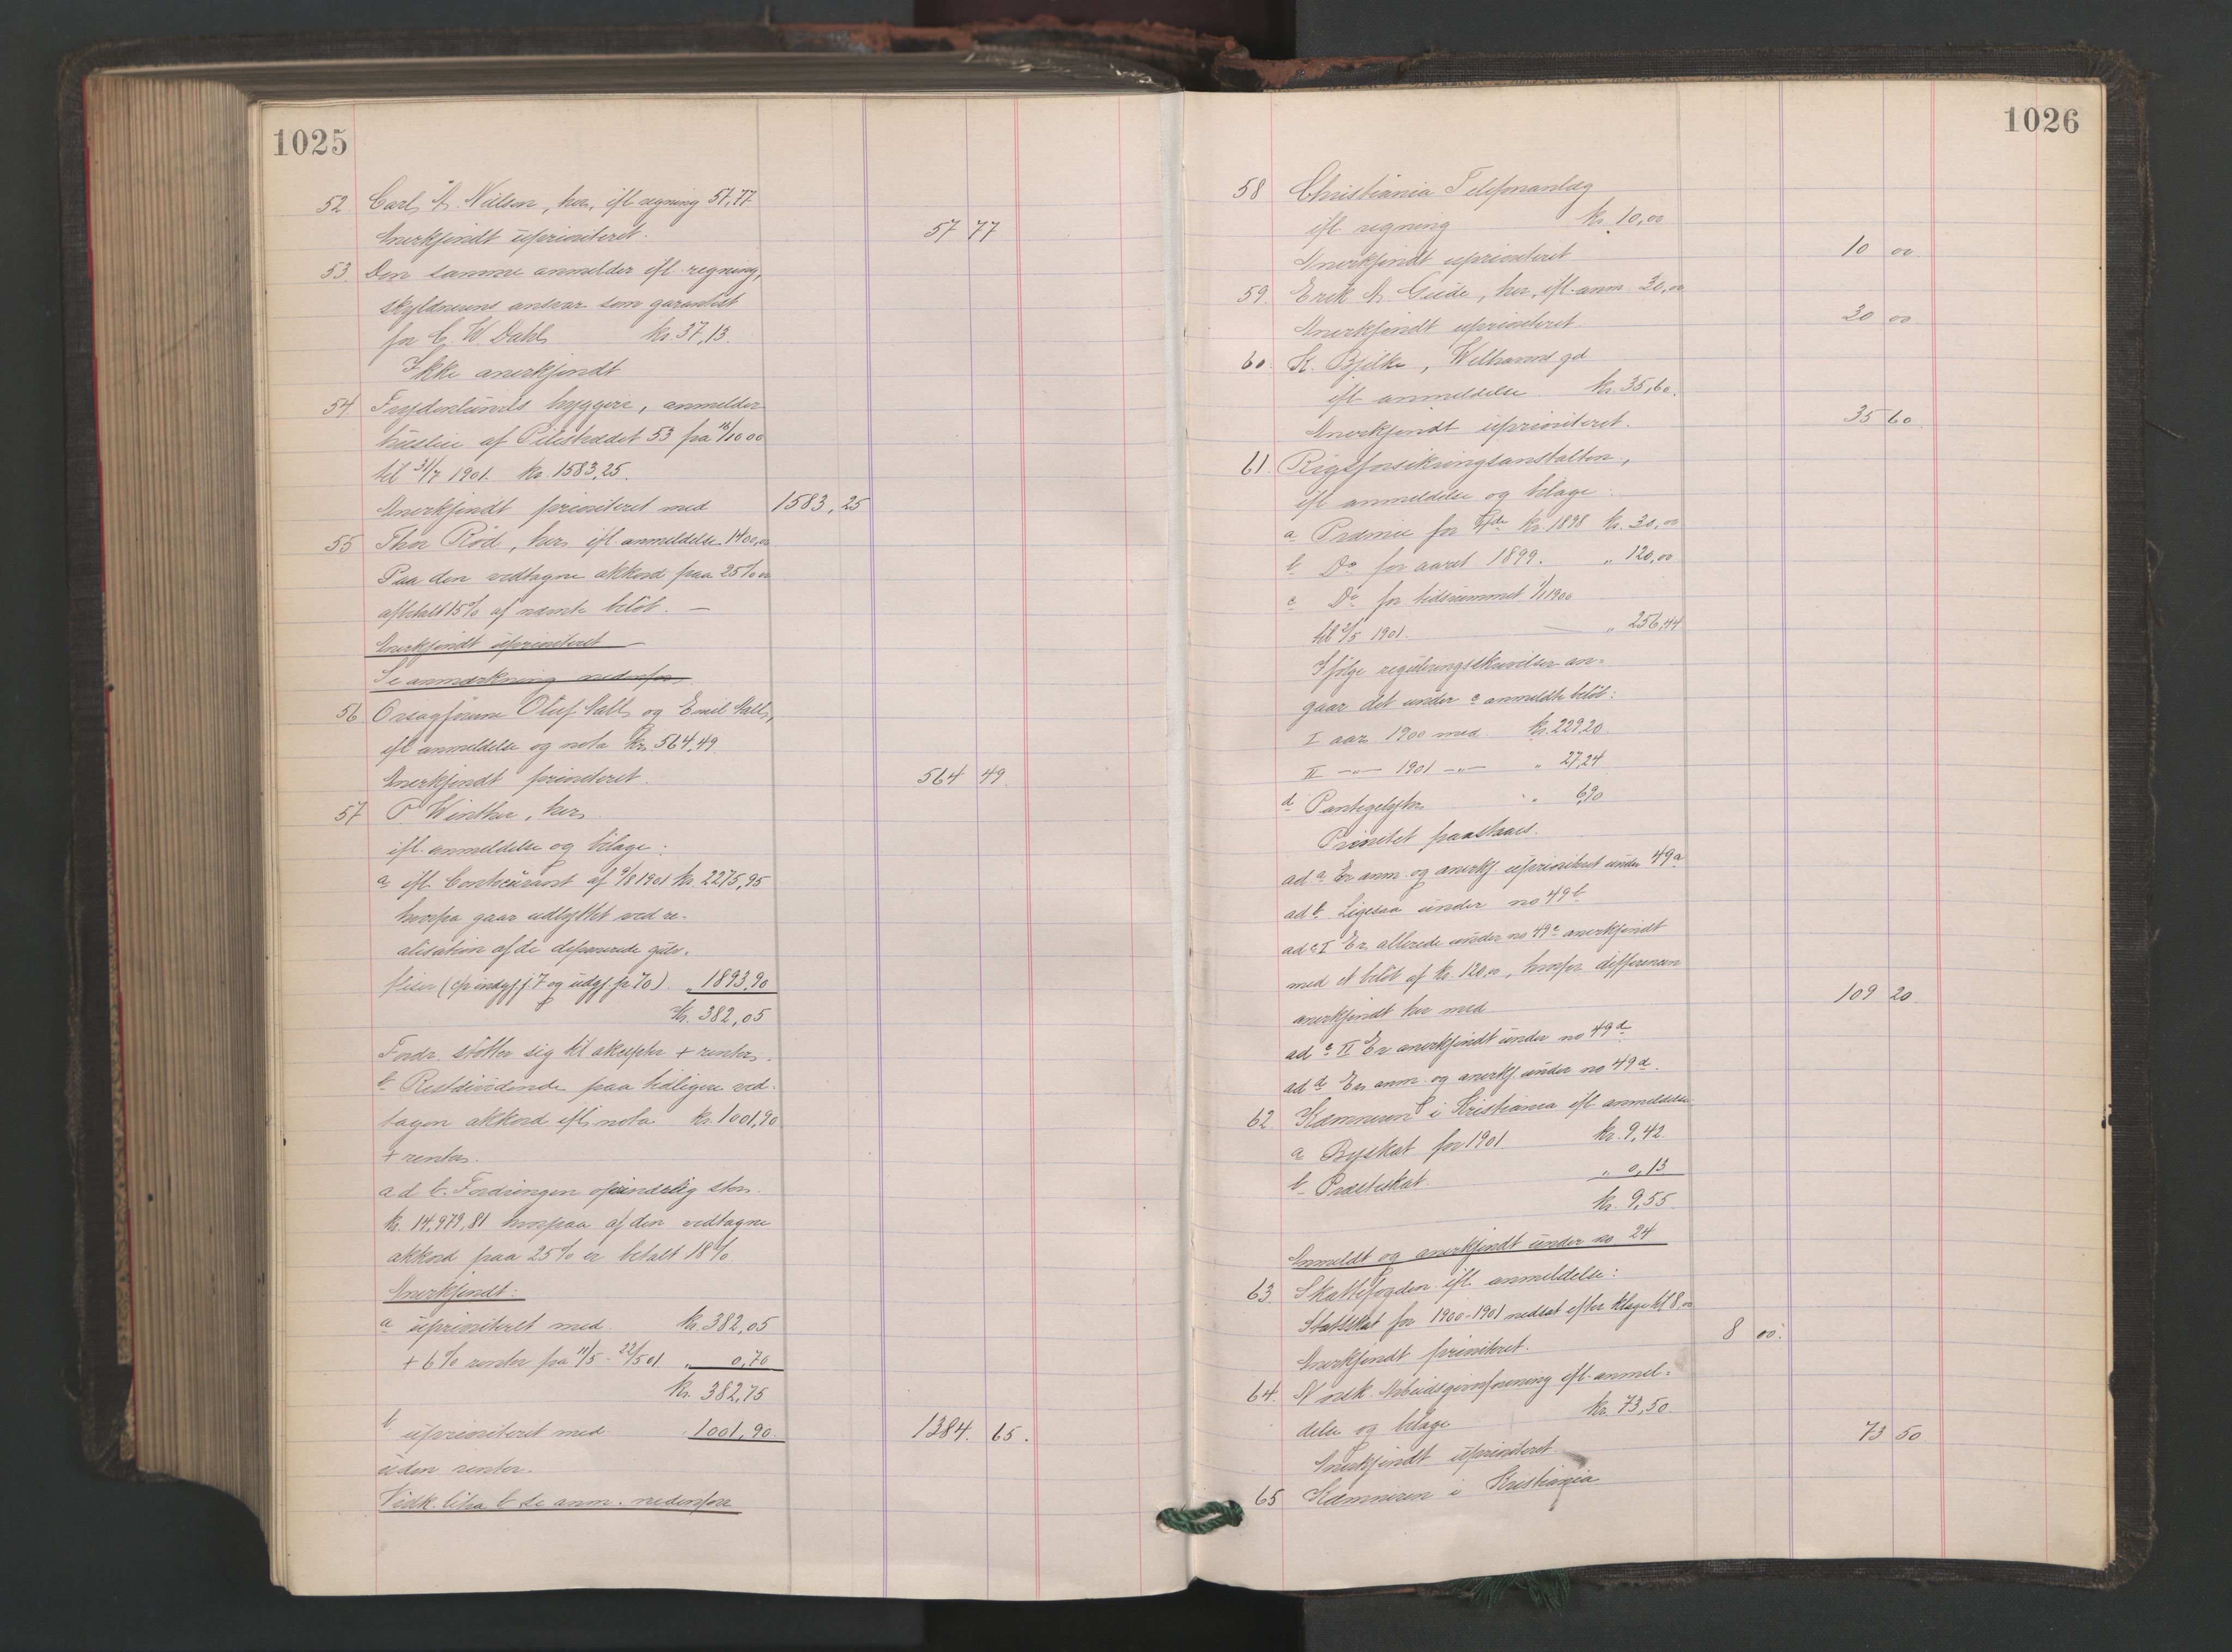 1025
52. Carl A. Nielsen, her, ifl regning 57,77
Anerkjendt uprioriteret. 57 77
53. Den samme anmelder ifl. regning,
skyldnerens ansvar som garantist
for C. W. Dahl kr. 37,13.
Ikke anerkjendt
54. Frydenlunds bryggeri, anmelder
husleie af Pilestrædet 53 fra 15/10 00
til 31/7 1901. kr. 1583,25.
Anerkjendt prioriteret med 1583,25
55 Thor Röd, her ifl. anmeldelse 1400,00
Paa den vedtagne akkord paa 25% er
afbetalt 15% af nævnte belöb. —
Anerkjendt uprioriteret
Se anmærkning nedenfor
56 Orsagförerne Oluf Aall og Emil Aall,
ifl anmeldelse og nota kr. 564,49.
Anerkjendt prioriteret. 564 49
57 P. Winther, her.
ifl. anmeldelse og bilage:
a ifl. Contocurant af 9/8 1901 kr. 2275,95
hvorpa gaar udbyttet ved re-
alisation af de deponerede gulv-
fliser (cfr indgj j 7 og udgj. pr 70) " 1893,90
Kr. 382,05
Fordr. stötter sig til aksepter + renter.
b Restdividende paa tidligere ved-
tagen akkord ifl. nota kr. 1001,90
+ renter.
ad b. Fordringen oprindelig stor
kr. 14,979,81 hvorpaa af den vedtagne
akkord paa 25% er betalt 18%
Anerkjendt:
a uprioriteret med kr. 382,05
+ 6% renter fra 11/5 - 22/5 01 " 0,70
kr. 382,75
b uprioriteret med 1001,90. 1384. 65.
uden renter.
Vedk. litra b se anm. nedenfor
1026
58 Christiania Telefonanlæg
ifl. regning kr. 10,00
Anerkjendt uprioriteret 10 00
59 Erik A. Gude, her, ifl. anm. 30,00
Anerkjendt uprioriteret 30 00
60. K. Bjelke, Welhavens gd
ifl anmeldelse. kr. 35,60.
Anerkjendt uprioriteret. 35 60
61 Rigsforsikringsanstalten,
ifl anmeldelse og bilage:
a Præmie for kv. 1898 kr. 30,00
b Do for aaret 1899. " 120,00
c Do for tidsrummet 1/1 1900
til 2/5 1901. " 256,44
Ifölge reguleringsskrivelser an-
gaar det under c anmeldte belöb:
I aar 1900 med kr. 229 20
II —"— 1901 —"— " 27,24
d Pantegebyhr " 6,90
Prioritet paastaaes.
ad a Er anm. og anerkj. uprioriteret under 49 a
ad b Ligesaa under no 49 b
ad c I Er allerede under no 49 c anerkjendt
med et belöb af kr. 120,00, hvorfor differensen
anerkjendt her med 109 20
ad c II Er anerkjendt under no 49 d
ad d Er anm. og anerkj. under no 49 d.
62 Kæmneren i Kristiania ifl anmeldelse
a Byskat for 1901. kr. 9,42.
b Prosteskat. " 0,13
kr. 9,55
Anmeldt og anerkjendt under no 24
63 Skattefogden ifl. anmeldelse:
Statsskat for 1900-1901 nedsat efter klage til 8,00
Anerkjendt prioriteret. 8 00.
64. Norsk Arbeidsgiverforening ifl. anmel-
delse og bilage kr. 73,50.
Anerkjendt uprioriteret 73 50
65 Kæmneren i Kristiania